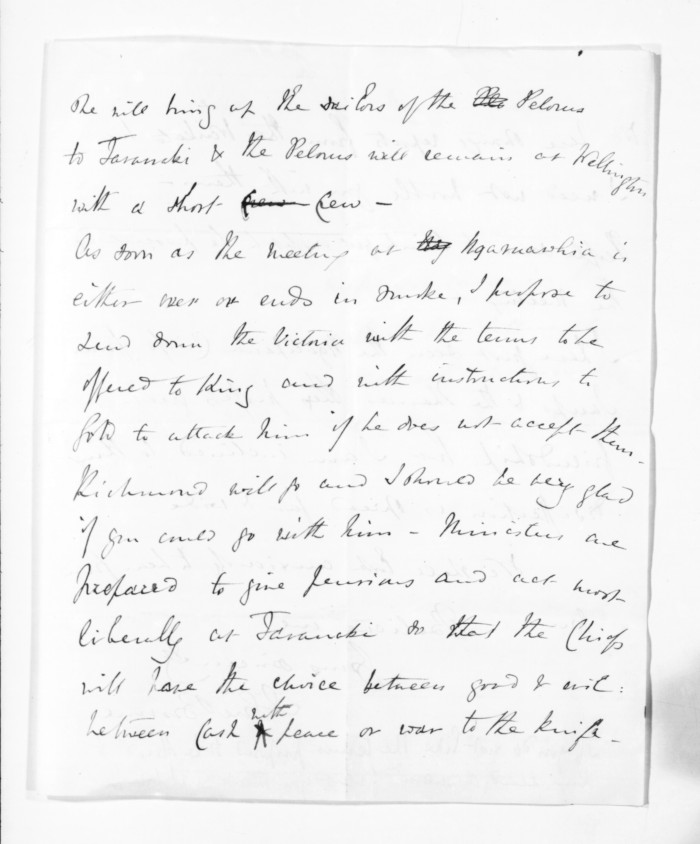 She will bring up the sailors of the Pelorus
to Taranaki & the Pelorus will remain at Wellington
with a short crew Crew —
As soon as the meeting at Ngaruawhia is
either over or ends in smoke, I propose to
send down the Victoria with the terms to be
offered to King and with instructions to
Gold to attack him if he does not accept them —
Richmond will go and I should be very glad
if you could go with him — Ministers are
prepared to give pensions and act most
liberally at Taranaki so that the Chiefs
will have the choice between good & evil:
between Cash with peace or war to the knife —